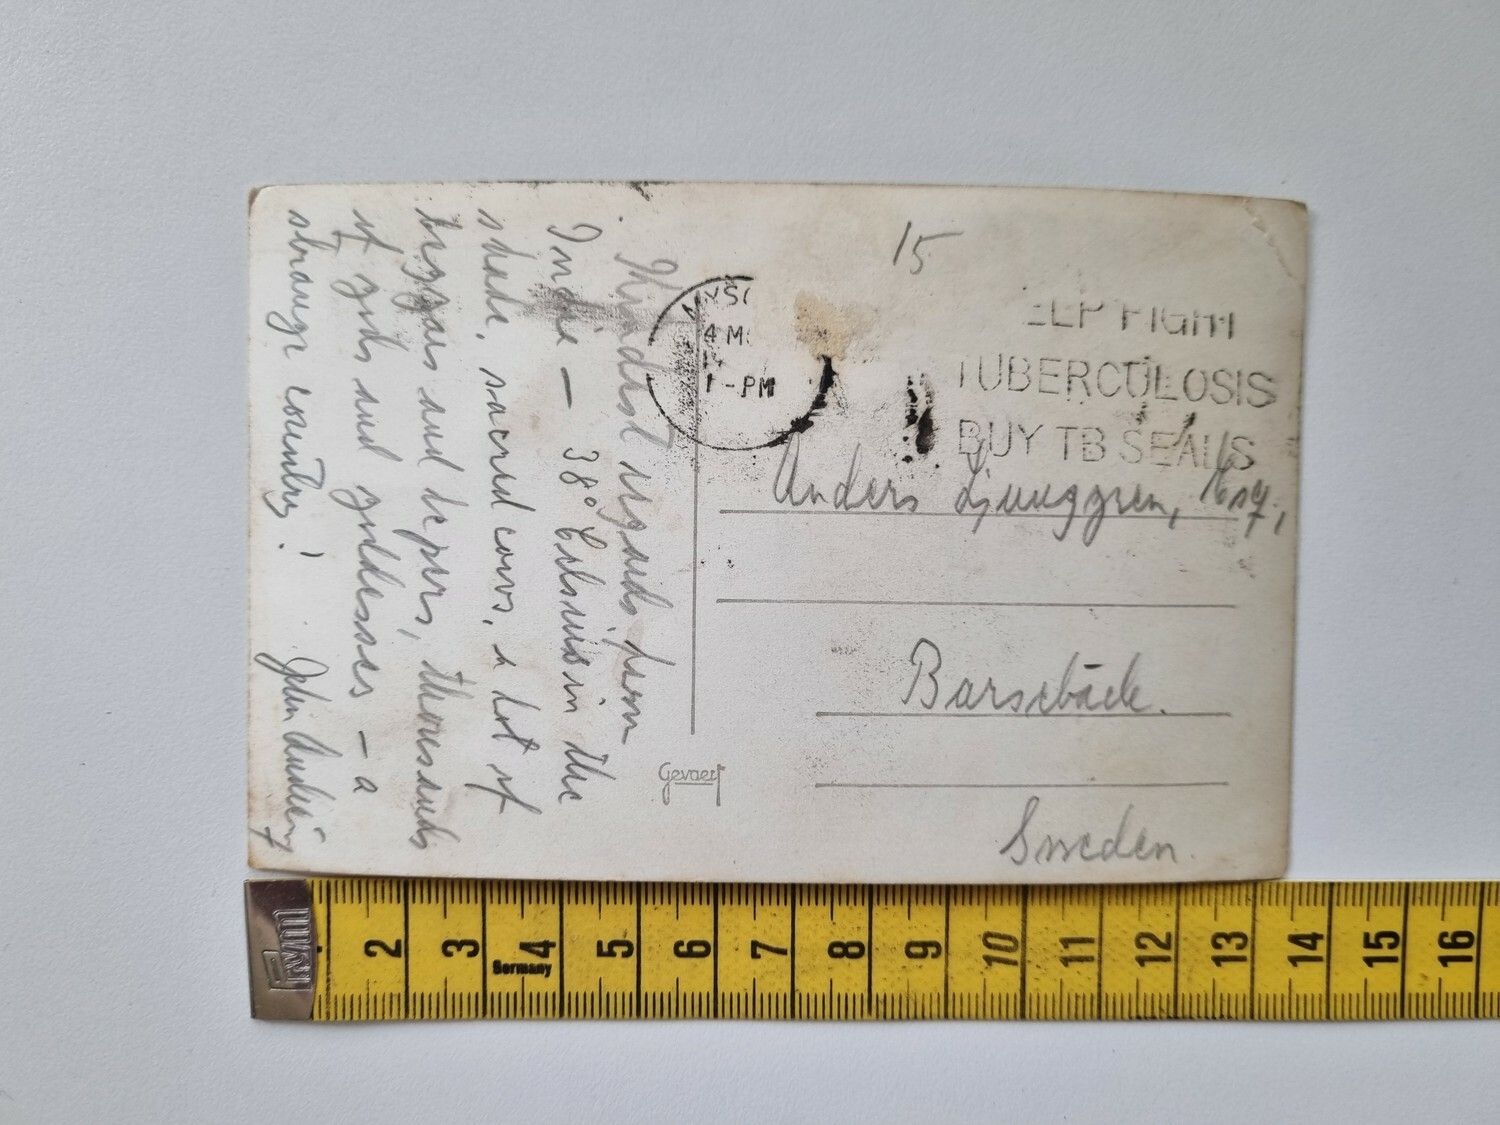 Kindest regards from
India — 38° Celsius in the
shade, sacred cows, a lot of
beggars and lepers, thousands
of gods and goddesses — a
strange country!
John
15
4 M
1-PM
ELP FIGHT
TUBERCULOSIS
BUY TB SEALS
Anders Ljunggren, Esq,
Barsebäck.
Sweden.
Gevaert
Prym
Germany
2 3 4 5 6 7 8 9 10 11 12 13 14 15 16